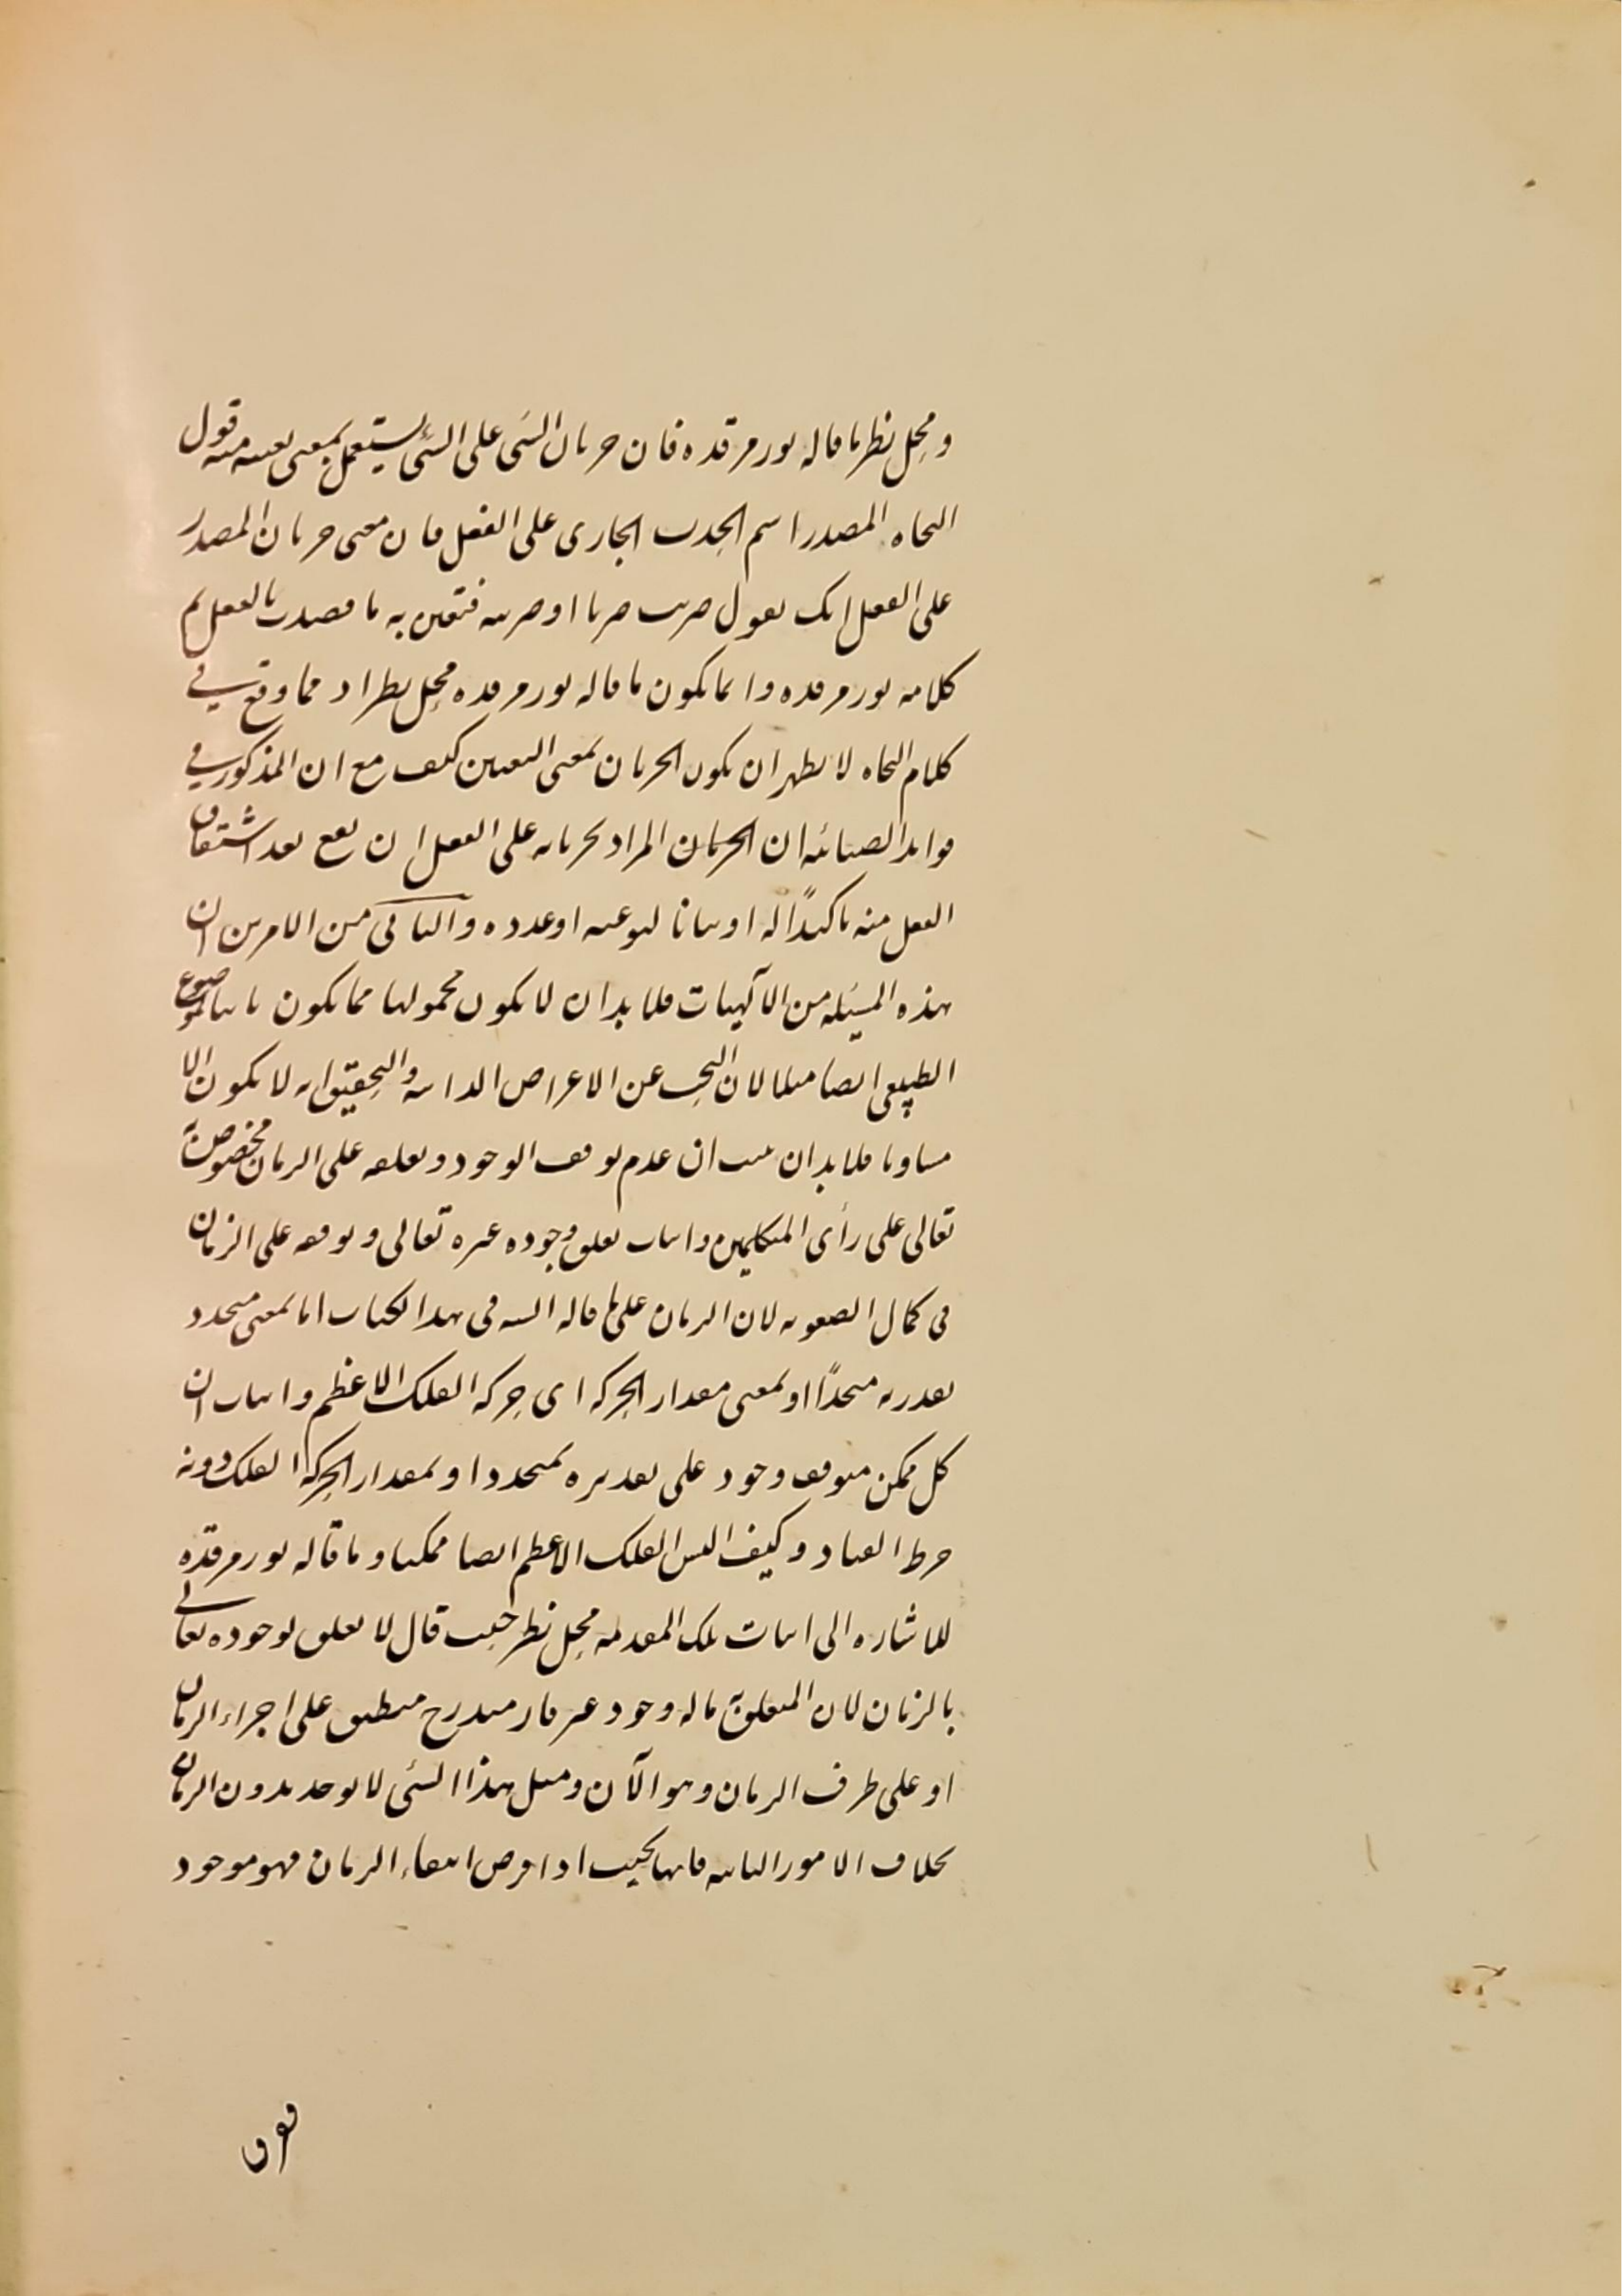 ومحل نظر ما قاله نور مرقده فان جريان الشئ على الشئ يستعمل بمعنى تعينه منه قول
النحاه المصدر اسم الحدث الجارى على الفعل فان معنى جريان المصدر
على الفعل انك تقول ضربت ضربا او ضربته فتعين به ما قصدت بالفعل تم
كلامه نور مرقده وانما يكون ما قاله نور مرقده محل نظر اذ مما وقع في
كلام النحاه لا يظهر ان يكون الجريان بمعنى التعين كيف مع ان المذكور في
فوايد الضيائيه ان الجريان المراد بجريانه على الفعل ان يقع بعد اشتقاق
الفعل منه تاكيدًا له او بيانا لنوعه او عدده والثانى من الامرين ان
هذه المسئله من الآلهيات فلا بد ان لا يكون محمولها مما يكون ثابتا لموضوع
الطبيعى ايضا مثلا لان البحث عن الاعراض الذاتيه والتحقيق انه لا يكون الا
مساويا فلا بد ان يثبت ان عدم توقف الوجود وتعلقه على الزمان مخصوص به
تعالى على رأى المتكلمين واثبات تعلق وجوده غيره تعالى وتوقفه على الزمان
فى كمال الصعوبه لان الزمان على ما قاله السيد فى هذا الكتاب اما بمعنى متجدد
يقدر به متجددًا او بمعنى مقدار الحركه اى حركه الفلك الاعظم واثبات ان
كل ممكن متوقف وجود على تقديره بمتجدد او بمقدار الحركه الفلك دونه
خرط القتاد وكيف اليس الفلك الاعظم ايضا ممكنا وما قاله نور مرقده
للاشاره الى اثبات تلك المقدمه محل نظر حيث قال لا تعلق لوجوده تعالى
بالزمان لان المتعلق به ما له وجود غير قار متدرج منطبق على اجزاء الزمان
او على طرف الزمان وهو الآن ومثل هذا الشئ لا يوجد بدون الزمان
بخلاف الامور الثابته فانها بحيث اذا فرض انتفاء الزمان فهو موجود